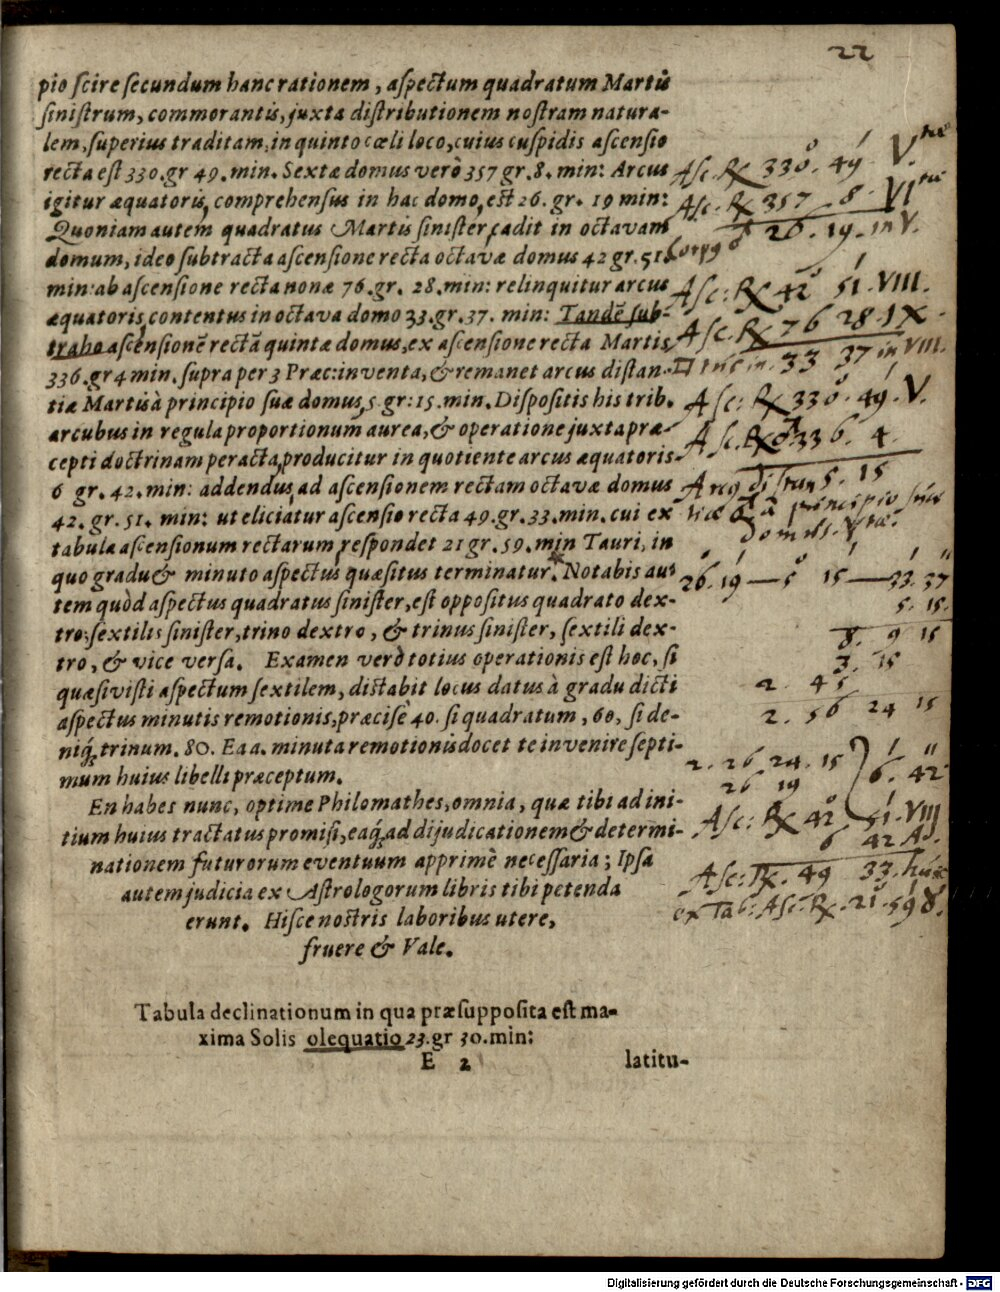 22
pio scire secundum hanc rationem, aspectum quadratum Martis
sinistrum, commorantis, juxta distributionem nostram natura-
lem, superius traditam, in quinto cœli loco, cuius cuspidis ascensio
recta est 330. gr 49. min. Sextæ domus verò 357 gr. 8. min: Arcus
igitur æquatoris, comprehensus in hac domo, est 26. gr. 19 min:
Quoniam autem quadratus Martis sinister, cadit in octavam
domum, ideo subtracta ascensione recta octavæ domus 42 gr. 51.
min: ab ascensione recta nonæ 76. gr. 28. min: relinquitur arcus
æquatoris, contentus in octava domo 33. gr. 37. min: Tandē sub-
traho ascensionē rectā quintæ domus, ex ascensione recta Martis
336. gr 4 min. supra per 3 Præc: inventa, & remanet arcus distan-
tiæ Martis à principio suæ domus, 5. gr: 15. min. Dispositis his trib.
arcubus in regula proportionum aurea, & operatione juxta præ-
cepti doctrinam peracta, producitur in quotiente arcus æquatoris
6 gr. 42. min: addendus, ad ascensionem rectam octavæ domus
42. gr. 51. min: ut eliciatur ascensio recta 49. gr. 33. min. cui ex
tabula ascensionum rectarum, respondet 21 gr. 59. min Tauri, in
quo gradu & minuto aspectus quæsitus terminatur. Notabis au-
tem quòd aspectus quadratus sinister, est oppositus quadrato dex-
tro: sextilis sinister, trino dextro, & trinus sinister, sextili dex-
tro, & vice versa. Examen verò totius operationis est hoc, si
quæsivisti aspectum sextilem, distabit locus datus à gradu dicti
aspectus minutis remotionis, præcisè 40. si quadratum, 60, si de-
niq́; trinum. 80. Ea a. minuta remotionis docet te invenire septi-
mum huius libelli præceptum.
En habes nunc, optime Philomathes, omnia, quæ tibi ad ini-
tium huius tractatus promisi, eaq́; ad dijudicationem & determi-
nationem futurorum eventuum apprimè necessaria; Ipsa
autem judicia ex Astrologorum libris tibi petenda
erunt. Hisce nostris laboribus utere,
fruere & Vale.
Tabula declinationum in qua præsupposita est ma-
xima Solis olequatio 23. gr 30. min:
E 2
latitu-
Asc. R 330. 49. V.tæ
Asc. R 357. 8. VI.tæ
26. 19. in V.
Asc: R 42 51. VIII.
Asc: R 76 28. IX
33 37 in VIII.
Asc: R 330. 49. V.
Asc. R ♂ 336. 4.
Arcg distan 5. 15
tiæ ♂ à principio suæ
domus. V.tæ.
26. 19 — 5 15 — 33. 37
5. 15.
8. 9 15
3. 15
2. 45
2. 56 24 15
2. 26. 24. 15 6. 42
26 19
Asc: R 42 51. VIII
6 42 Ad.
Asc: R. 49 33. huic
ex Tab: Asc: R. 21. 59 ♉.
Digitalisierung gefördert durch die Deutsche Forschungsgemeinschaft - DFG